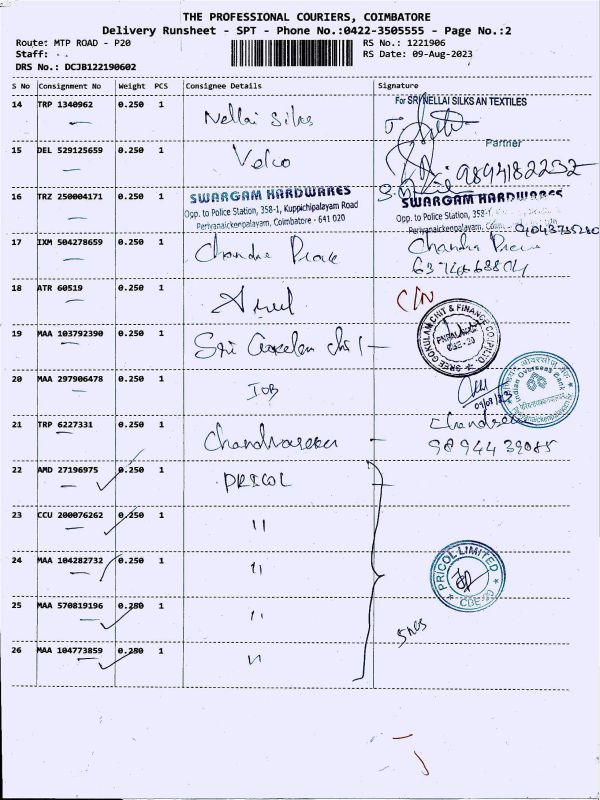 THE PROFESSIONAL COURIERS, COIMBATORE
Delivery Runsheet - SPT - Phone No.:0422-3505555 - Page No.:2
Route: MTP ROAD - P20 RS No.: 1221906
Staff: RS Date: 09-Aug-2023
DRS No.: DCJB122190602
S No Consignment No Weight PCS Consignee Details Signature
14 TRP 1340962 0.250 1 Nellai Silks For SRI NELLAI SILKS AN TEXTILES
Partner
15 DEL 529125659 0.250 1 9894182232
16 TRZ 250004171 0.250 1 SWARGAM HARDWARES SWARGAM HARDWARES
Opp. to Police Station, 358-1, Kuppichipalayam Road Opp. to Police Station, 358-1
Periyanaickenpalayam, Coimbatore - 641 020 Periyanaickenpalayam,
17 IXM 504278659 0.250 1 Chandra
18 ATR 60519 0.250 1
19 MAA 103792390 0.250 1 Sri SREE GOKULAM CHIT & FINANCE CO.(P)LTD.
20 MAA 297906478 0.250 1 IOB Indian Overseas Bank
09/08/23
21 TRP 6227331 0.250 1 Chandrasekar
22 AMD 27196975 0.250 1 PRICOL
23 CCU 200076262 0.250 1 11
24 MAA 104282732 0.250 1 11 PRICOL LIMITED
CBE
25 MAA 570819196 0.250 1 11
26 MAA 104773859 0.250 1 11